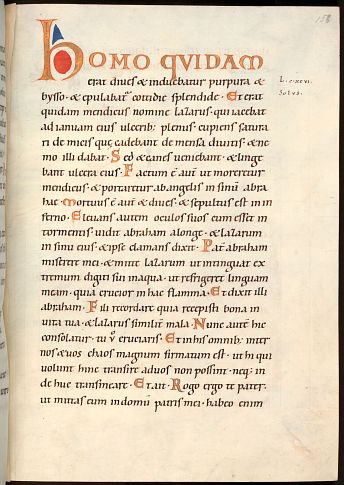 HOMO QVIDAM
erat diues & induebatur purpura &
bysso · & epulabat' cotidie splendide · Et erat
quidam mendicus nomine lazarus · qui iacebat
ad ianuam eius ulcerib; plenus · cupiens satura
ri de micis quę cadebant de mensa diuitis · & ne
mo illi dabat · Sed & canes ueniebant · & linge
bant ulcera eius · Factum ē aut ut moreretur
mendicus · & portaretur ab angelis in sinū abra
hae · Mortuus ē aut & diues · & sepultus est in in
ferno · Eleuans autem oculos suos cum esset in
tormentis · uidit abraham a longe · & lazarum
in sinu eius · & ipse clamans dixit · Pat abraham
miserere mei · & mitte lazarum ut intinguat ex
tremum digiti sui in aqua · ut refrigeret linguam
meam · quia crucior in hac flamma · Et dixit illi
abraham · Fili recordare quia recepisti bona in
uita tua · & lazarus similit mala · Nunc aute hic
consolatur · tu u cruciaris · Et in his omnib; inter
nos & uos chaos magnum firmatum est · ut hi qui
uolunt hinc transire ad uos non possint · neq; in
de huc transmeare · Et ait · Rogo ergo te pater ·
ut mittas eum in domū patris mei · habeo enim